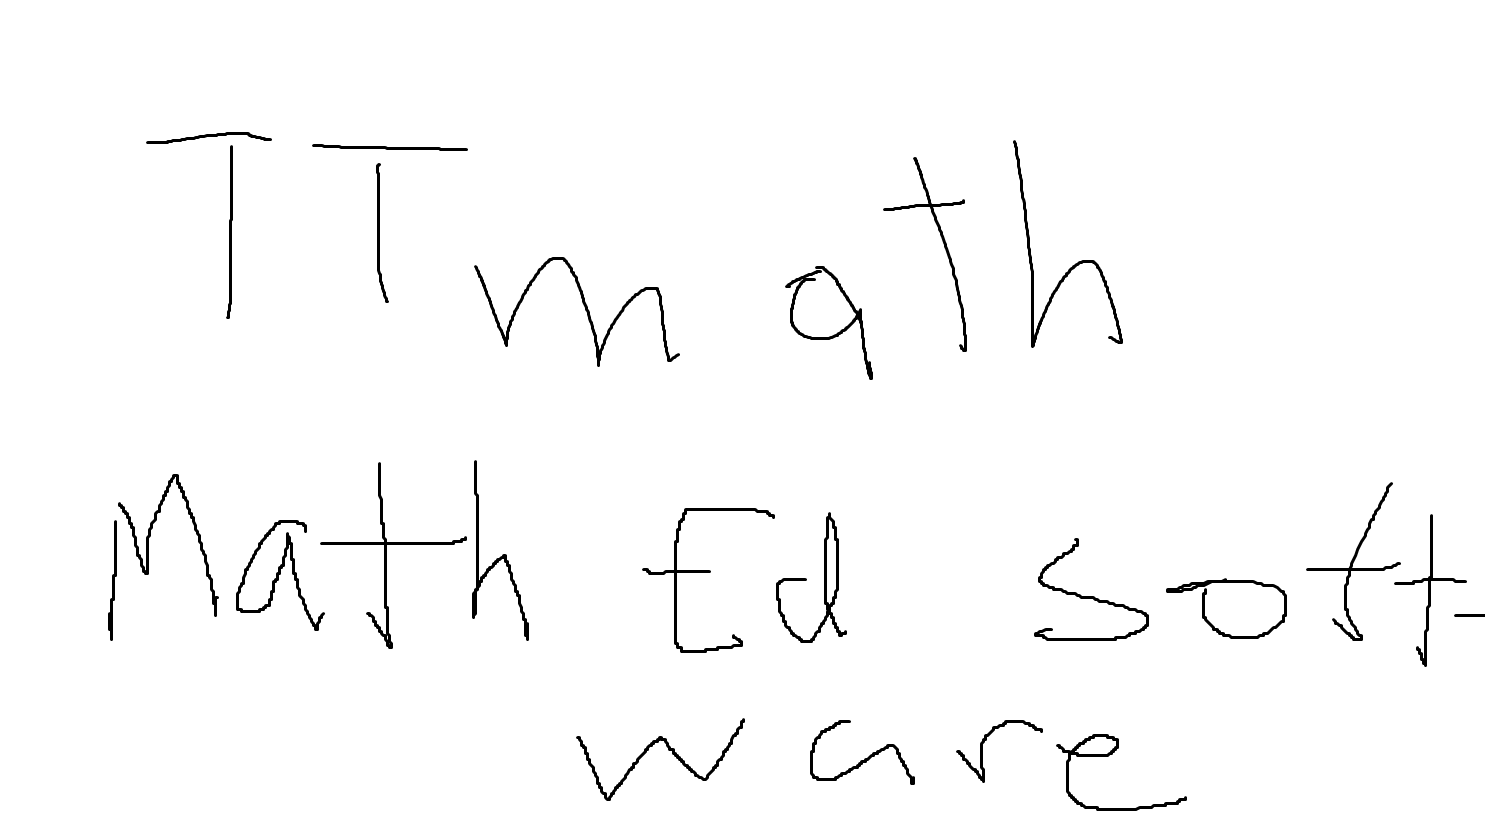 TTmath
Math Ed soft-
ware